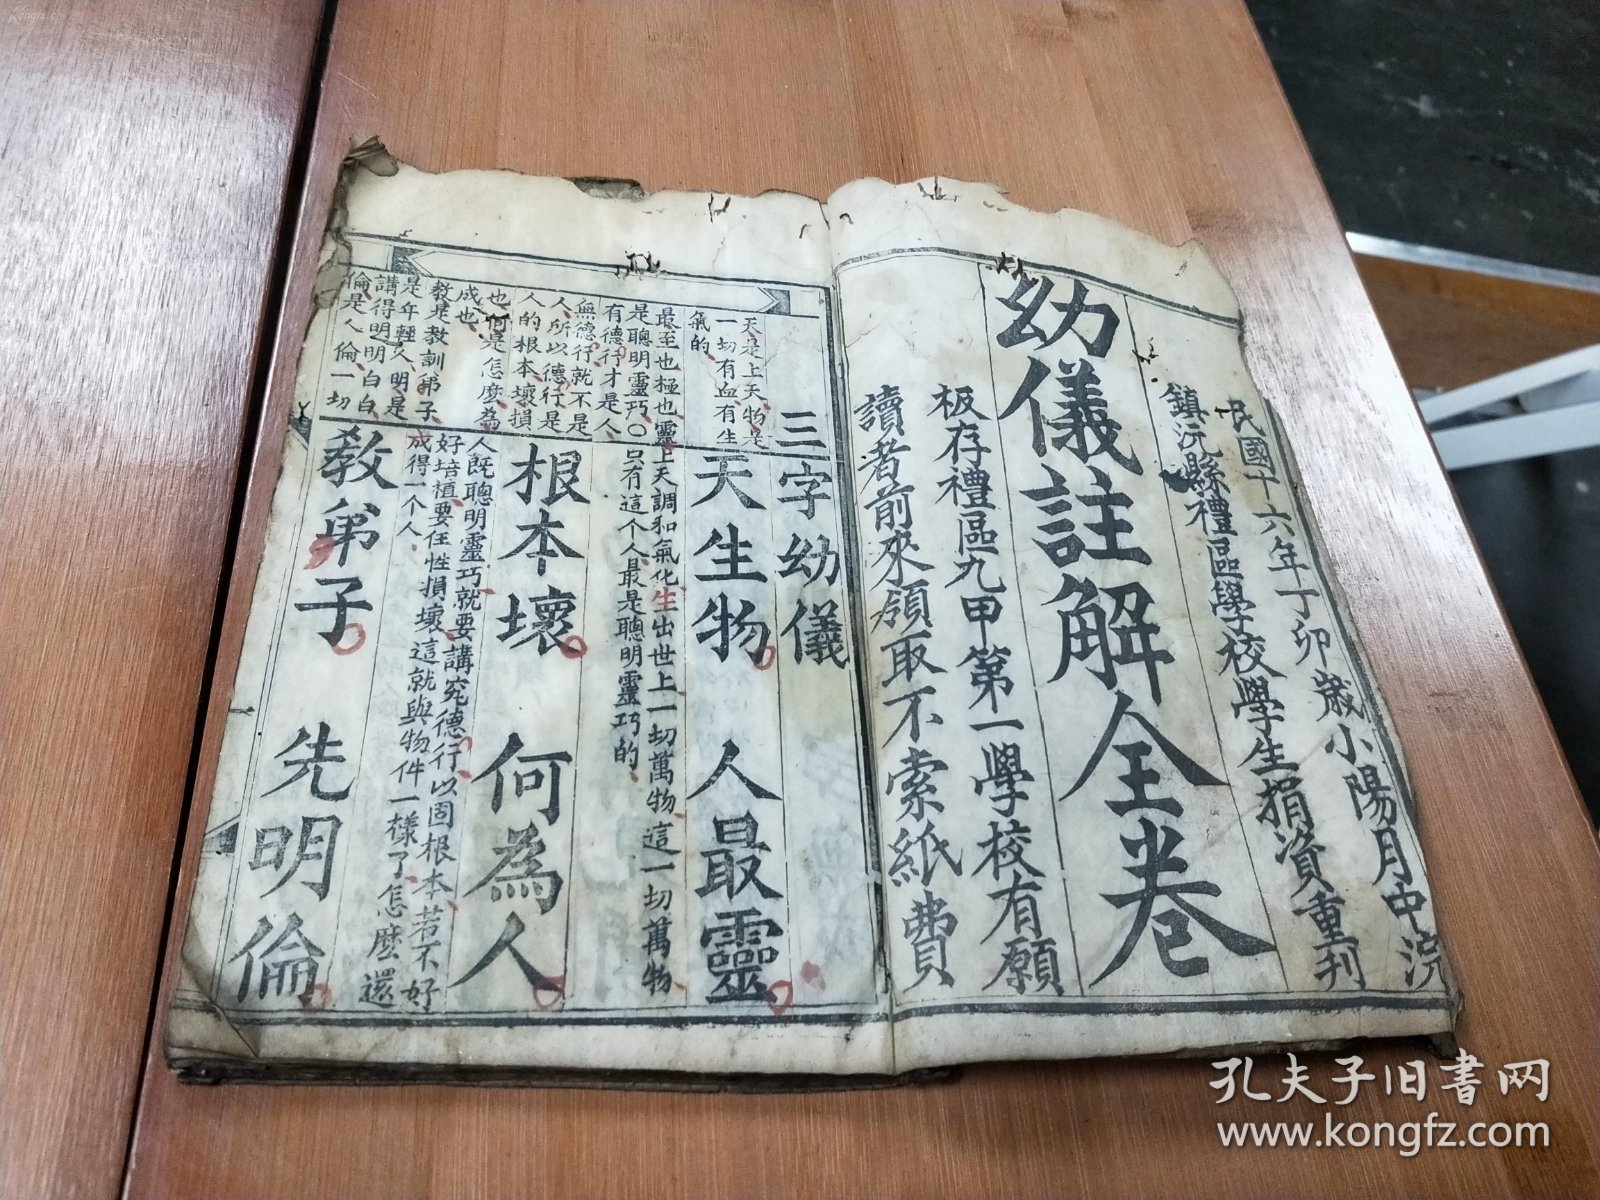 民國十六年丁卯歲小陽月中浣
鎮沅縣禮區學校學生捐資重刊
幼儀註解全卷
板存禮區九甲第一學校有願
讀者前來領取不索紙費
三字幼儀
天是上天物是
一切有血有生
氣的
最至也極也靈
是聰明靈巧○
有德行才是人
無德行就不是
人所以德行是
人的根本壞損
也何是怎麼為
成也
教是教訓弟子
是年輕人明是
講得明明白白
倫是人倫一切
天生物 人最靈
上天調和氣化生出世上一切萬物這一切萬物
只有這个人最是聰明靈巧的
根本壞 何為人
人既聰明靈巧就要講究德行以固根本若不好
好培植要任性損壞這就與物件一樣了怎麼還
成得一个人
教弟子 先明倫
孔夫子旧書网
www.kongfz.com
kongfz.cn